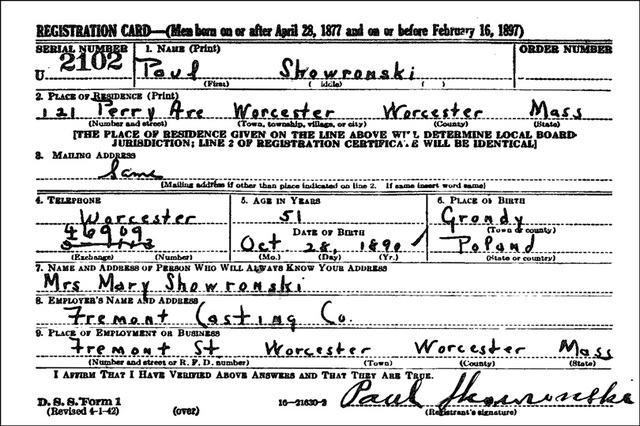 REGISTRATION CARD—(Men born on or after April 28, 1877 and on or before February 16, 1897)
SERIAL NUMBER 1. NAME (Print) ORDER NUMBER
U 2102 Paul Skowronski
(First) (Middle) ( )
2. PLACE OF RESIDENCE (Print)
121 Perry Ave Worcester Worcester Mass
(Number and street) (Town, township, village, or city) (County) (State)
[THE PLACE OF RESIDENCE GIVEN ON THE LINE ABOVE WILL DETERMINE LOCAL BOARD
JURISDICTION; LINE 2 OF REGISTRATION CERTIFICATE WILL BE IDENTICAL]
3. MAILING ADDRESS
Same
(Mailing address if other than place indicated on line 2. If same insert word same)
4. TELEPHONE 5. AGE IN YEARS 6. PLACE OF BIRTH
Worcester 51 Grondy
DATE OF BIRTH (Town or county)
46909 Oct 28, 1890 Poland
(Exchange) (Number) (Mo.) (Day) (Yr.) (State or country)
7. NAME AND ADDRESS OF PERSON WHO WILL ALWAYS KNOW YOUR ADDRESS
Mrs Mary Skowronski
8. EMPLOYER'S NAME AND ADDRESS
Fremont Casting Co.
9. PLACE OF EMPLOYMENT OR BUSINESS
Fremont St Worcester Worcester Mass
(Number and street or R. F. D. number) (Town) (County) (State)
I AFFIRM THAT I HAVE VERIFIED ABOVE ANSWERS AND THAT THEY ARE TRUE.
Paul Skowronski
D. S. S. Form 1 16—21630-2 (Registrant's signature)
(Revised 4-1-42) (over)